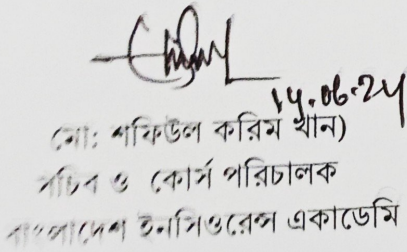 ১৭.০৬.২৪
(মো: শফিউল করিম খান)
সচিব ও কোর্স পরিচালক
বাংলাদেশ ইনসিওরেন্স একাডেমি